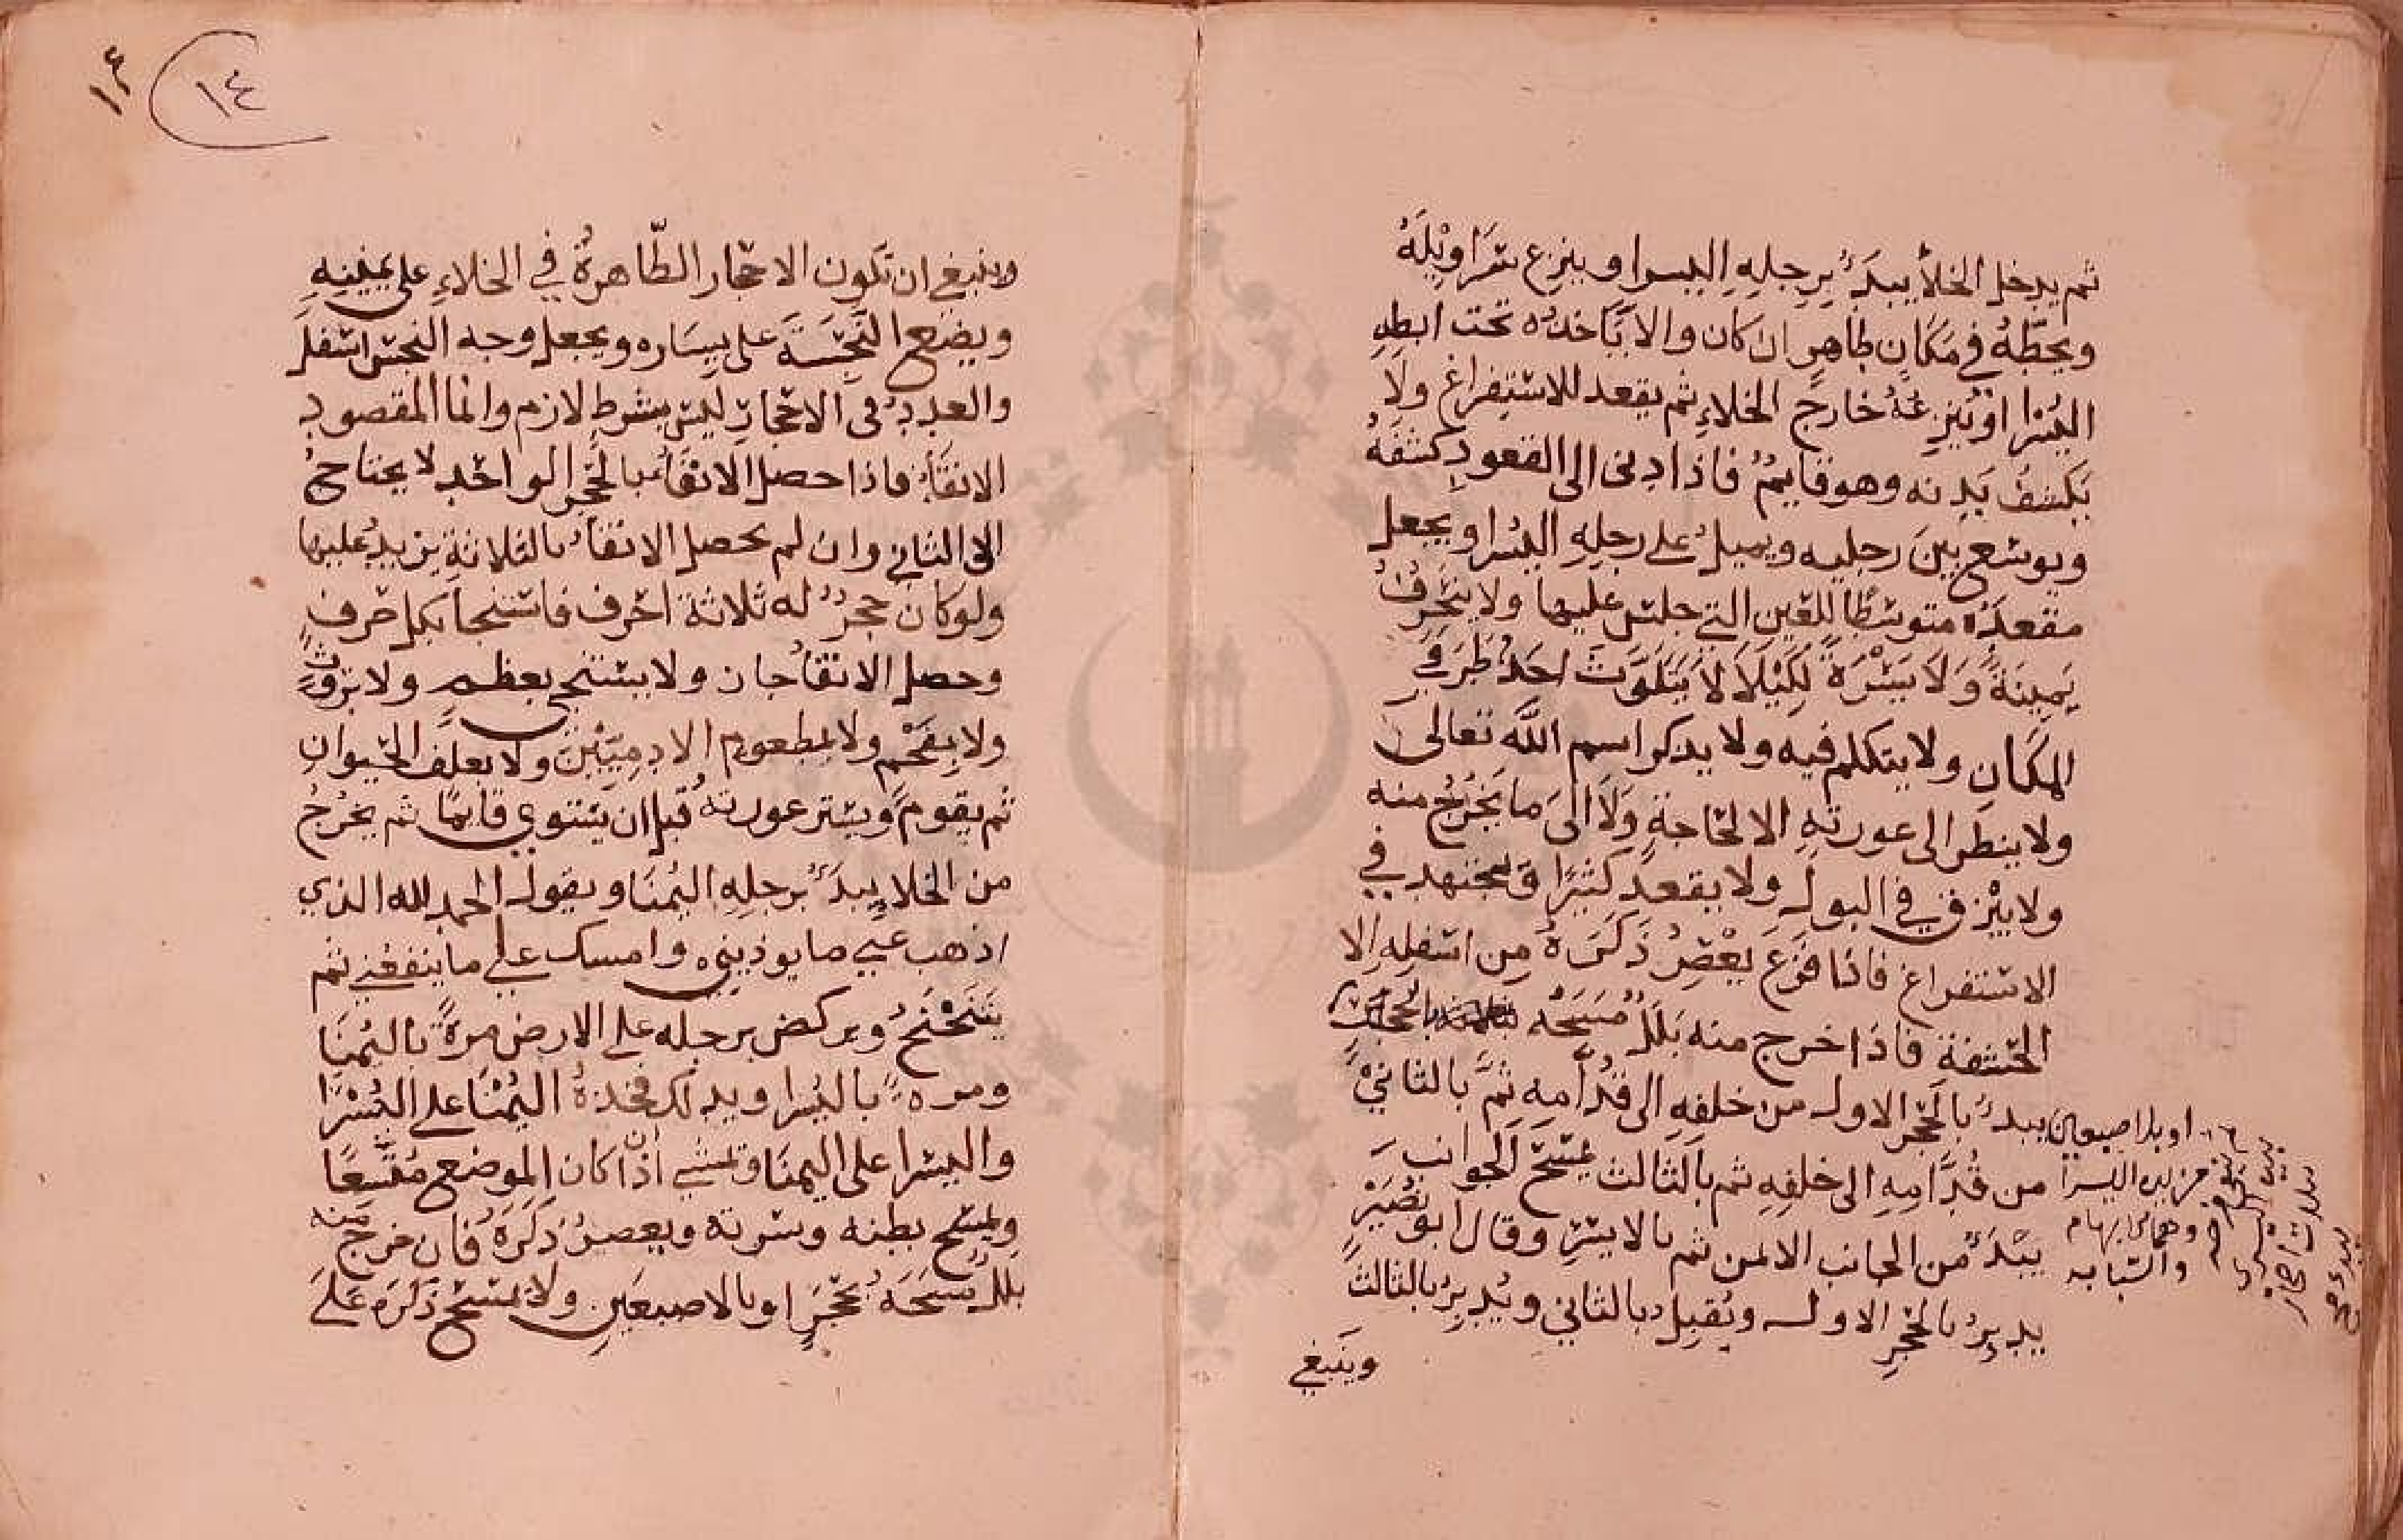 ثم يدخل الخلأ يبدَءُ برِجلِهِ اليسرا وينزع سَرَاوِيْلَهُ
ويحطّهُ في مَكَانٍ طاهرٍ ان كان والا يَاخذُه تحت ابطِهِ
اليُسْرا او يُنزِعُهُ خارجَ الخلاءِ ثم يقعد للاستِفراغ ولا
يَكشفُ بَدِنه وهو قايمٌ فاذا دنى الى القعودِ كشفَهُ
ويوسّع بينَ رجليه ويميلُ على رجلِهِ اليُسْرا ويجعل
مقعدَهُ متوسّطًا للعَينِ التي جلس عليها ولا ينحرفُ
يَمِينَةً وَلَا يَسْرَةً لِكَيْلَا لَا يَتَلَوَّتَ احَدُ طَرَفي
المكانِ ولا يتكلم فيه ولا يذكر اسم اللّه تعالى
ولا ينظر الى عورتِهِ الا لحاجةٍ وَلَا الىَ ما يَخرُجُ منه
ولا يبْزق في البولِ ولا يقعد كثيرًا وَيجتهد في
الاستفراغ فاذا فرَغ يعْصِرُ ذَكَرَهُ مِن اسفلِهِ الا
الحشفة فاذَا خرج منه بَلَلٌ مَسَحَه بالحجر
يبدءُ بالحَجَرِ الاول من خلفِهِ الى قُدَّامِه ثمَّ بالثاني
من قُدَّامِهِ الى خلفِهِ ثم بالثالث يمسَحُ الجوانب
يَبْدَءُ من الجانب الايمن ثم بالايسَرِ وقال ابو نُصَيْرٍ
يدبِرُ بالحجَرِ الاول ويُقبِلُ بالثاني ويُدبِرُ بالثالث
وينبغي
او بالاصبعين
من اليد اليسرا
وهما الابهام
والسبابه
١٤
١٤
وينبغي ان تكون الاحجار الطّاهرةُ في الخلاءِ على يمينِهِ
ويضع النّجِسَةَ على يسَاره ويجعل وجه النجس اسْفلَ
والعددُ في الاحجارِ ليس بشرطٍ لازم وانما المقصود
الانقاءُ فاذا حصل الانقَاءُ بالحَجَرِ الواحدِ لا يحتاجُ
الى الثاني وان لم يحصل الانقاءُ بالثلاثةِ يزيدُ عليها
ولو كان حجرٌ له ثلاثة احرف فاستنجا بكل حَرفٍ
وحصل الانقاءُ جان ولا يستنجي بعظمٍ ولا بروثٍ
ولا بِفحْمٍ ولا بمطعومِ الادمِيّيْنَ ولا بعلفِ الحَيوانِ
ثم يقومُ ويستر عورتهُ قبل ان يستوي قايمًا ثم يخرُجُ
من الخلاءِ يبدَءُ برجلِهِ اليُمنَا ويقول الحمد لله الذي
اذهب عني ما يوذيني وامسك علي ما ينفعني ثم
يَتَنَحْنَحُ ويركض برجله على الارض مرةً باليُمنَا
ومرهً باليُسرا ويدلك فخذهُ اليُمْنَا على اليُسْرَا
واليسرا على اليمنا ويمشي ان اذا كان الموضع متّسِعًا
ويمسَح بطنه وسرته ويعصرُ ذَكَرَهُ فان خرج منه
بللٌ يمسَحَهُ بحجَرٍ او بالاصبعَينِ ولا يمسَح ذَكَرَهُ عَلَى